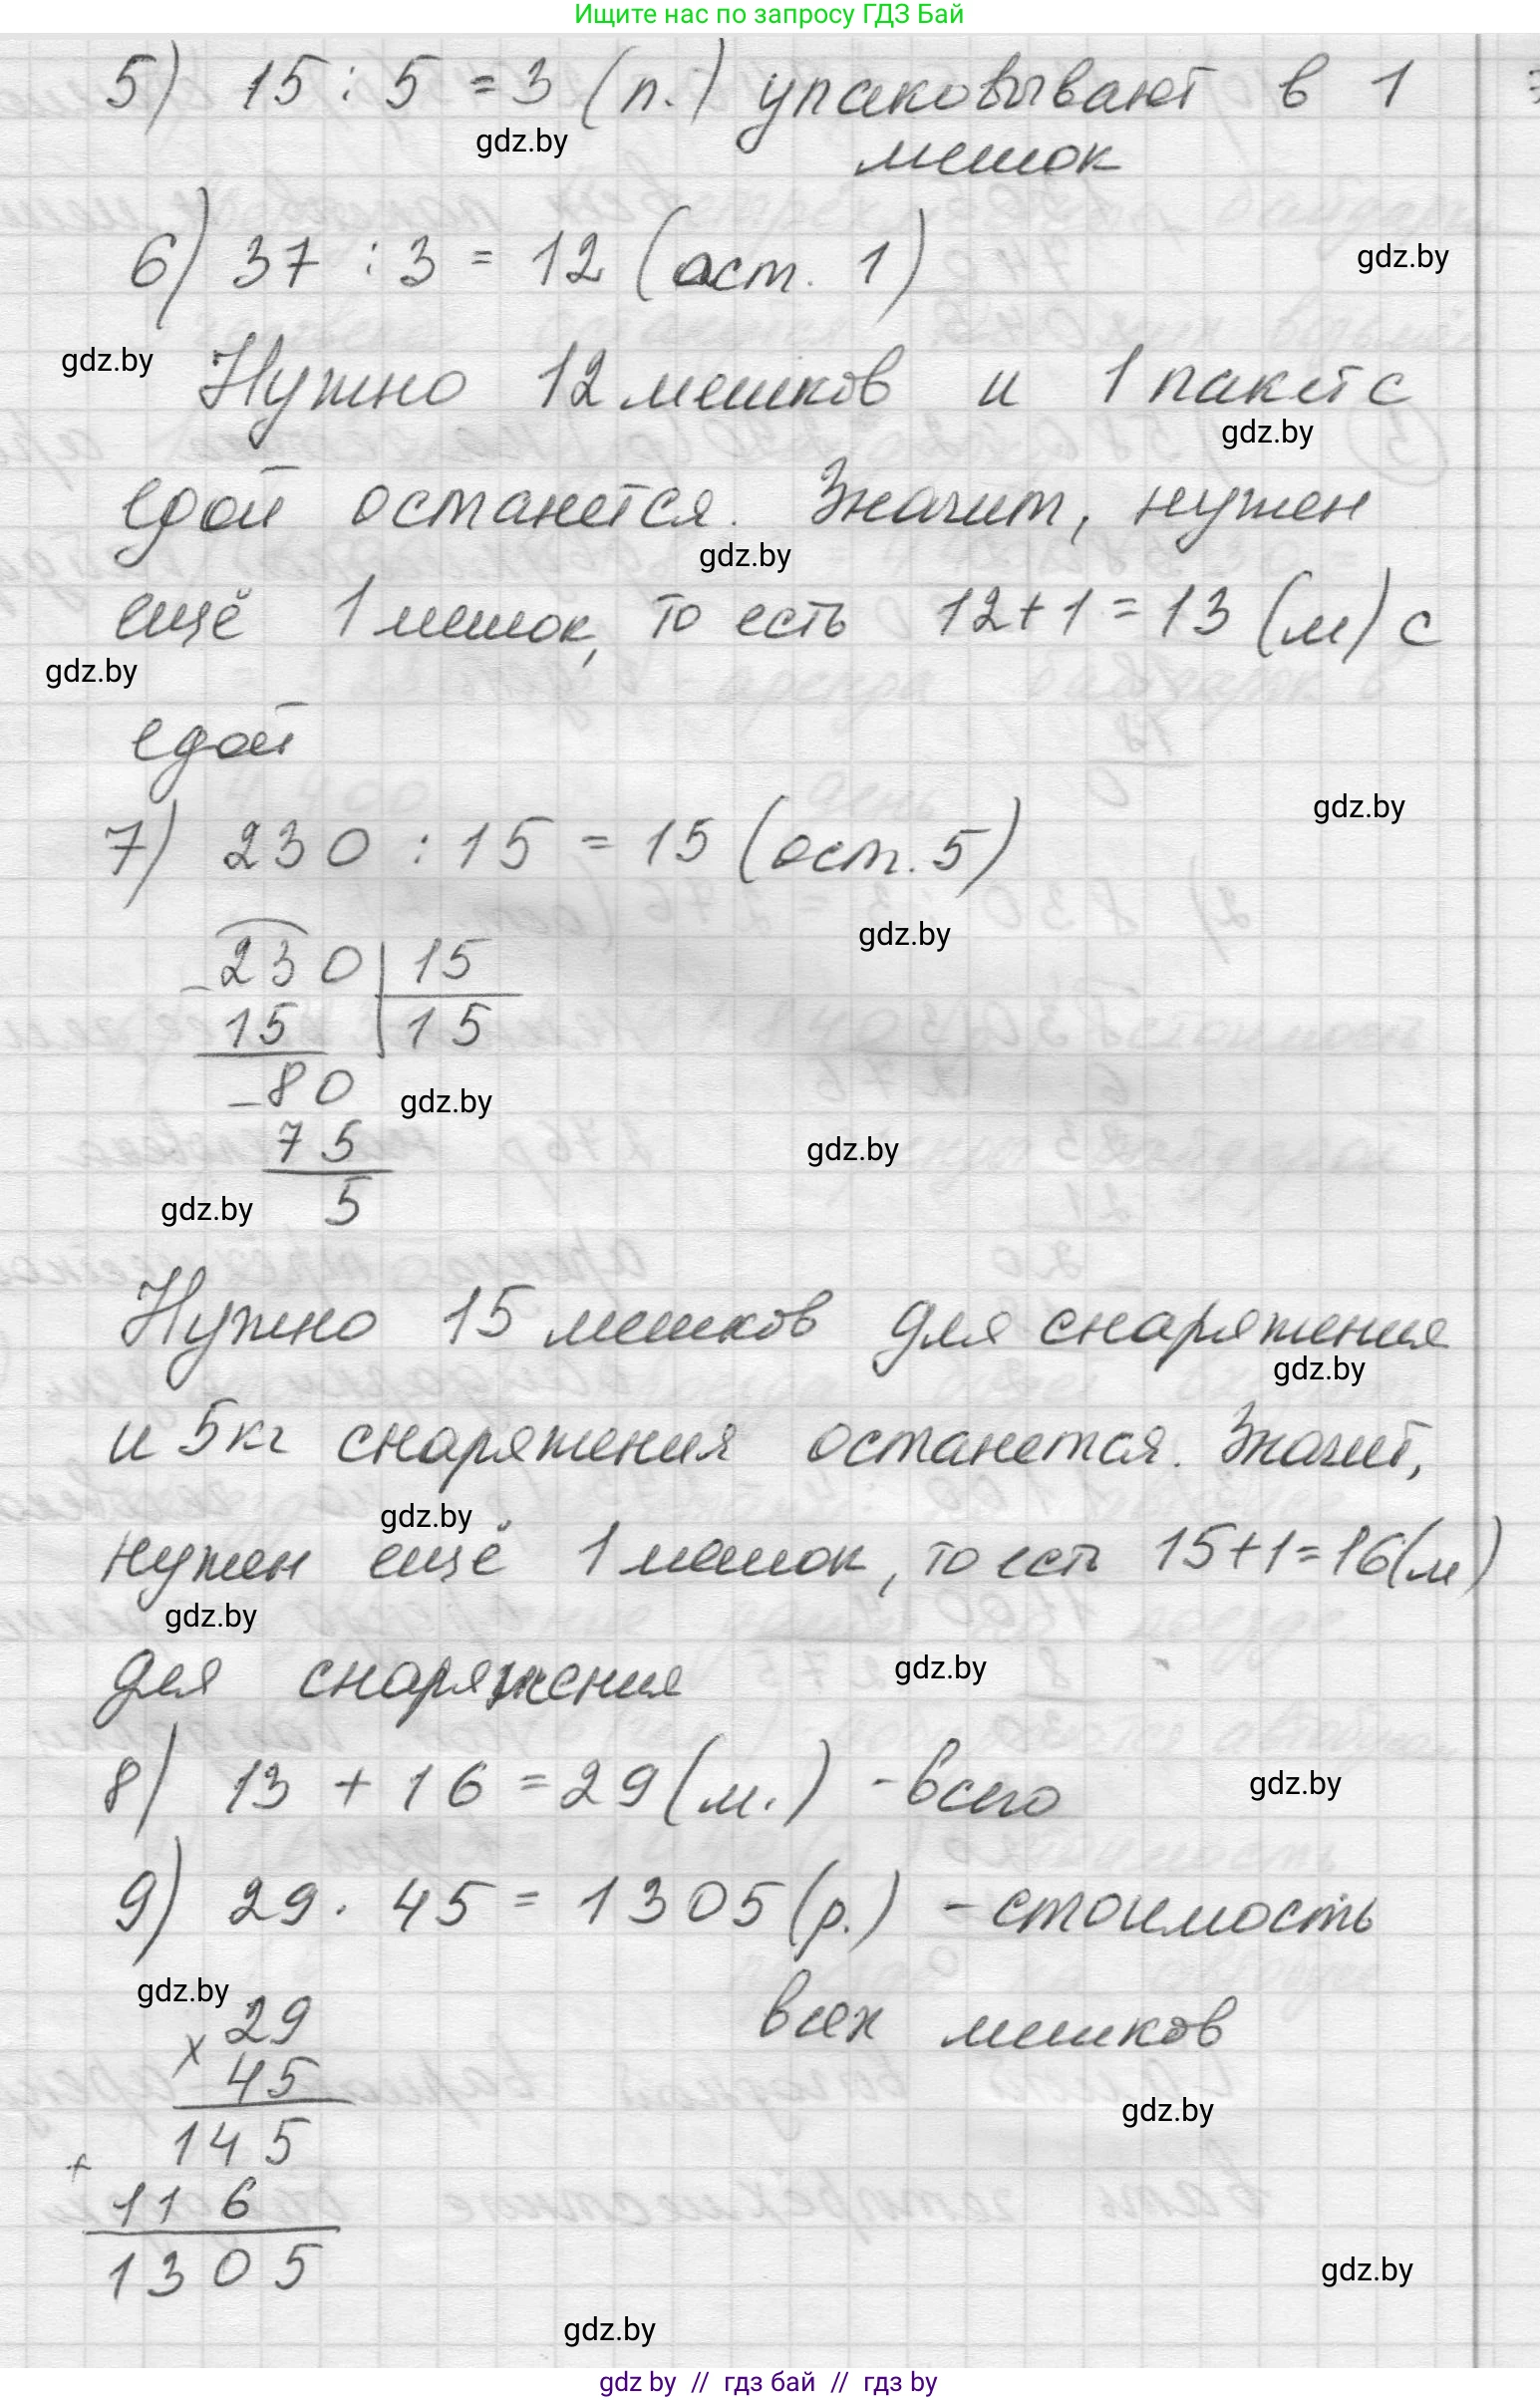 Ищите нас по запросу ГДЗ Бай
5) 15 : 5 = 3 (п.) упаковывают в 1
gdz.by
мешок
6) 37 : 3 = 12 (ост. 1)
gdz.by
gdz.by
Нужно 12 мешков и 1 пакет с
gdz.by
едой останется. Значит, нужен
gdz.by
ещё 1 мешок, то есть 12+1=13 (м) с
gdz.by
едой
gdz.by
7) 230 : 15 = 15 (ост. 5)
gdz.by
− 230 | 15
15 | 15
− 80
gdz.by
75
gdz.by
5
gdz.by
Нужно 15 мешков для снаряжения
gdz.by
и 5кг снаряжения останется. Значит,
gdz.by
нужен ещё 1 мешок, то есть 15+1=16(м)
gdz.by
для снаряжения
gdz.by
8) 13 + 16 = 29 (м.) - всего
gdz.by
9) 29 · 45 = 1305 (р.) - стоимость
gdz.by
всех мешков
× 29
45
gdz.by
145
+
116
1305
gdz.by
gdz.by
gdz by // гдз бай // гдз by